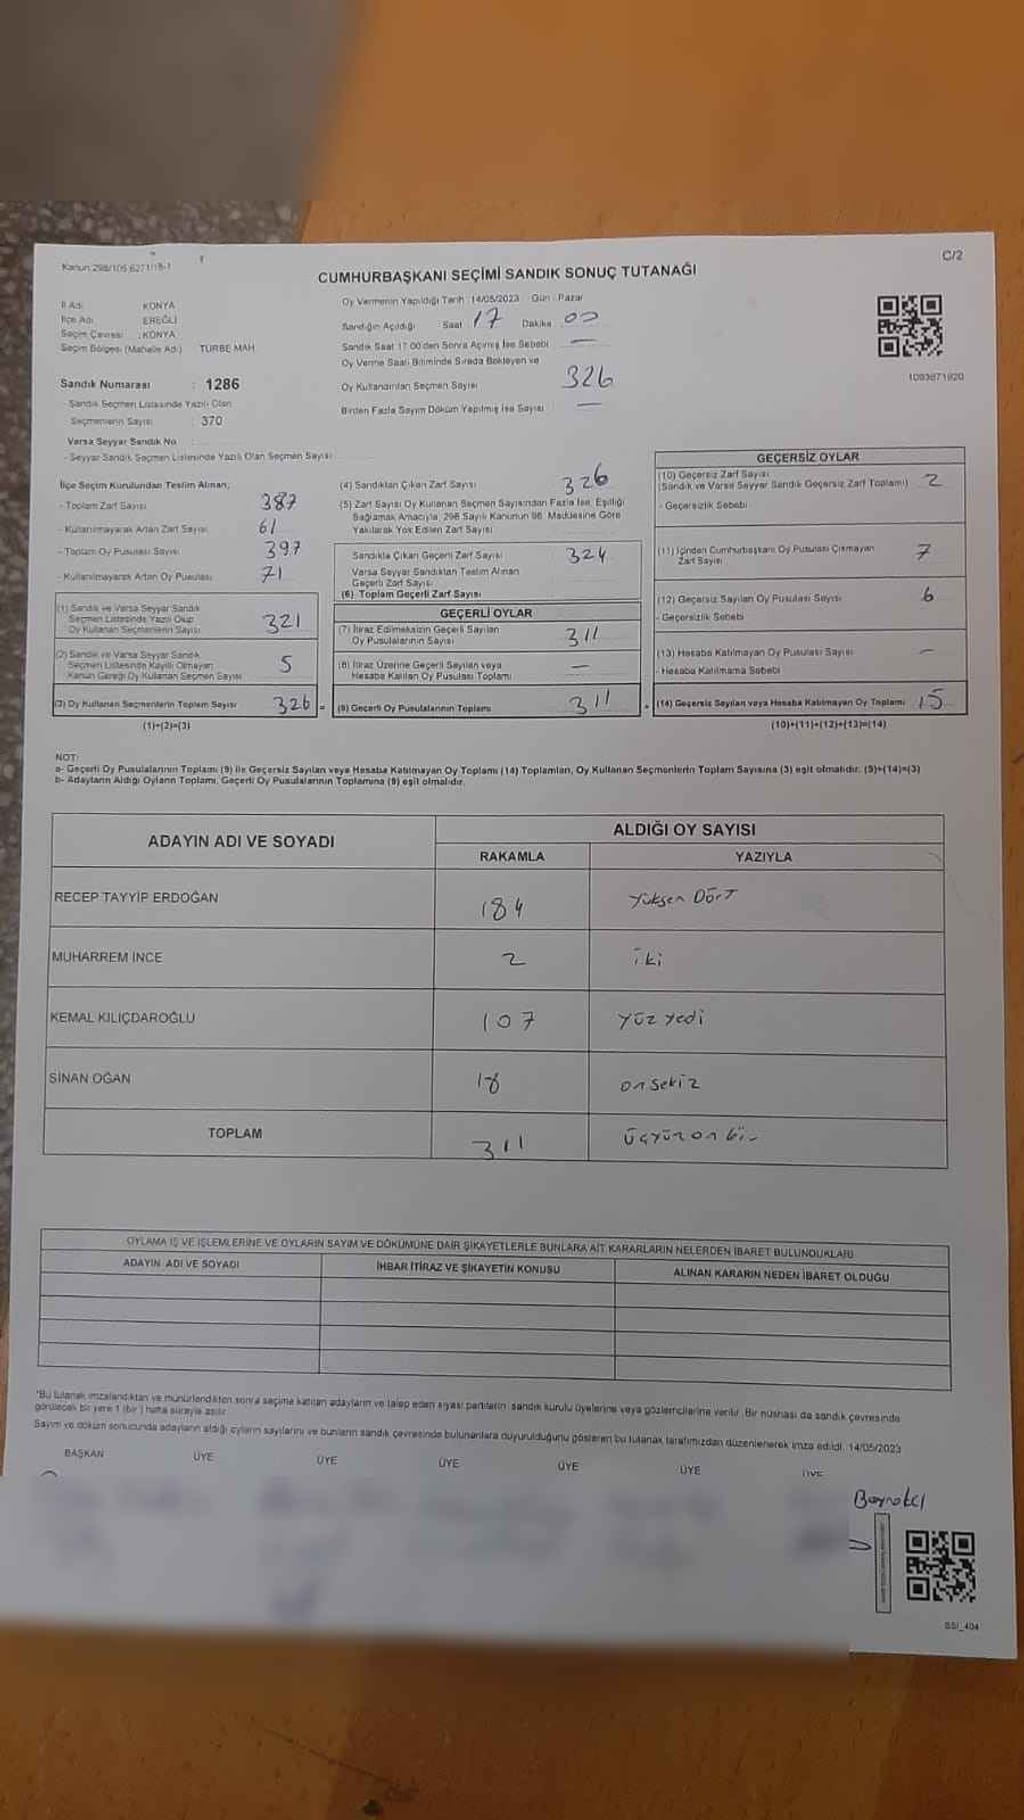 Kanun:298/105,6271/18-1
C/2
CUMHURBAŞKANI SEÇİMİ SANDIK SONUÇ TUTANAĞI
İl Adı : KONYA
İlçe Adı : EREĞLİ
Seçim Çevresi : KONYA
Seçim Bölgesi (Mahalle Adı) : TÜRBE MAH
Sandık Numarası : 1286
- Sandık Seçmen Listesinde Yazılı Olan
Seçmenlerin Sayısı : 370
Varsa Seyyar Sandık No :
- Seyyar Sandık Seçmen Listesinde Yazılı Olan Seçmen Sayısı
Oy Vermenin Yapıldığı Tarih : 14/05/2023 Gün : Pazar
Sandığın Açıldığı Saat : 17 Dakika : 00
Sandık Saat 17:00'den Sonra Açılmış İse Sebebi : —
Oy Verme Saati Bitiminde Sırada Bekleyen ve
Oy Kullandırılan Seçmen Sayısı 326
Birden Fazla Sayım Döküm Yapılmış İse Sayısı : —
1093871920
İlçe Seçim Kurulundan Teslim Alınan;
- Toplam Zarf Sayısı 387
- Kullanılmayarak Artan Zarf Sayısı 61
- Toplam Oy Pusulası Sayısı 397
- Kullanılmayarak Artan Oy Pusulası 71
(1) Sandık ve Varsa Seyyar Sandık
Seçmen Listesinde Yazılı Olup
Oy Kullanan Seçmenlerin Sayısı 321
(2) Sandık ve Varsa Seyyar Sandık
Seçmen Listesinde Kayıtlı Olmayan
Kanun Gereği Oy Kullanan Seçmen Sayısı 5
(3) Oy Kullanan Seçmenlerin Toplam Sayısı 326 =
(1)+(2)=(3)
(4) Sandıktan Çıkan Zarf Sayısı 326
(5) Zarf Sayısı Oy Kullanan Seçmen Sayısından Fazla İse, Eşitliği
Sağlamak Amacıyla, 298 Sayılı Kanunun 98. Maddesine Göre
Yakılarak Yok Edilen Zarf Sayısı
Sandıkta Çıkan Geçerli Zarf Sayısı 324
Varsa Seyyar Sandıktan Teslim Alınan
Geçerli Zarf Sayısı
(6) Toplam Geçerli Zarf Sayısı
GEÇERLİ OYLAR
(7) İtiraz Edilmeksizin Geçerli Sayılan
Oy Pusulalarının Sayısı 311
(8) İtiraz Üzerine Geçerli Sayılan veya
Hesaba Katılan Oy Pusulası Toplamı —
(9) Geçerli Oy Pusulalarının Toplamı 311 +
GEÇERSİZ OYLAR
(10) Geçersiz Zarf Sayısı
(Sandık ve Varsa Seyyar Sandık Geçersiz Zarf Toplamı) 2
- Geçersizlik Sebebi
(11) İçinden Cumhurbaşkanı Oy Pusulası Çıkmayan
Zarf Sayısı 7
(12) Geçersiz Sayılan Oy Pusulası Sayısı 6
- Geçersizlik Sebebi
(13) Hesaba Katılmayan Oy Pusulası Sayısı -
- Hesaba Katılmama Sebebi
(14) Geçersiz Sayılan veya Hesaba Katılmayan Oy Toplamı 15
(10)+(11)+(12)+(13)=(14)
NOT:
a- Geçerli Oy Pusulalarının Toplamı (9) ile Geçersiz Sayılan veya Hesaba Katılmayan Oy Toplamı (14) Toplamları, Oy Kullanan Seçmenlerin Toplam Sayısına (3) eşit olmalıdır. (9)+(14)=(3)
b- Adayların Aldığı Oyların Toplamı, Geçerli Oy Pusulalarının Toplamına (9) eşit olmalıdır.
ADAYIN ADI VE SOYADI
ALDIĞI OY SAYISI
RAKAMLA YAZIYLA
RECEP TAYYİP ERDOĞAN 184 Yüksen Dört
MUHARREM İNCE 2 iki
KEMAL KILIÇDAROĞLU 107 yüz yedi
SİNAN OĞAN 18 onsekiz
TOPLAM 311 üçyüz on bir
OYLAMA İŞ VE İŞLEMLERİNE VE OYLARIN SAYIM VE DÖKÜMÜNE DAİR ŞİKAYETLERLE BUNLARA AİT KARARLARIN NELERDEN İBARET BULUNDUKLARI
ADAYIN ADI VE SOYADI İHBAR İTİRAZ VE ŞİKAYETİN KONUSU ALINAN KARARIN NEDEN İBARET OLDUĞU
*Bu tutanak imzalandıktan ve mühürlendikten sonra seçime katılan adayların ve talep eden siyasi partilerin sandık kurulu üyelerine veya gözlemcilerine verilir. Bir nüshası da sandık çevresinde
görülecek bir yere 1 (bir) hafta süreyle asılır.
Sayım ve döküm sonucunda adayların aldığı oyların sayılarını ve bunların sandık çevresinde bulunanlara duyurulduğunu gösteren bu tutanak tarafımızdan düzenlenerek imza edildi. 14/05/2023
BAŞKAN ÜYE ÜYE ÜYE ÜYE ÜYE ÜYE
SSI_404